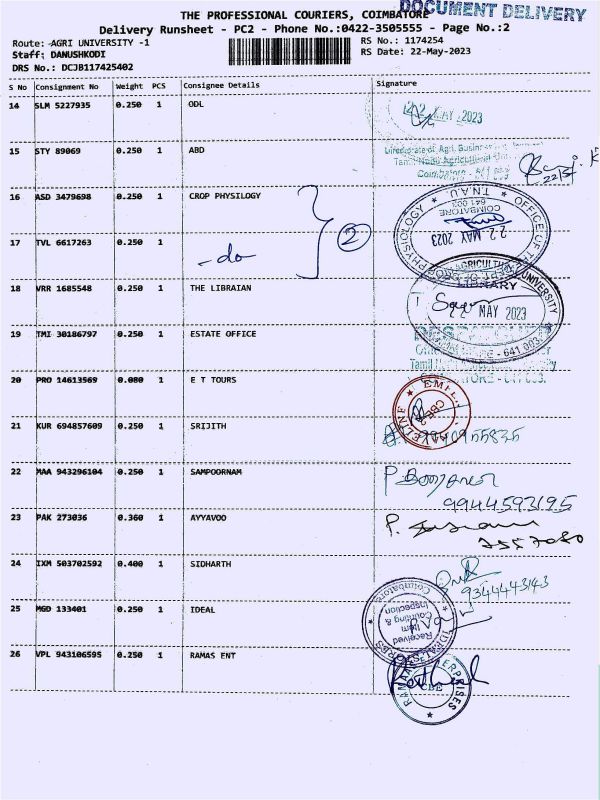 THE PROFESSIONAL COURIERS, COIMBATORE
DOCUMENT DELIVERY
Delivery Runsheet - PC2 - Phone No.:0422-3505555 - Page No.:2
Route: AGRI UNIVERSITY -1
RS No.: 1174254
Staff: DANUSHKODI
RS Date: 22-May-2023
DRS No.: DCJB117425402
S No Consignment No Weight PCS Consignee Details Signature
14 SLM 5227935 0.250 1 ODL
22 MAY 2023
15 STY 89069 0.250 1 ABD
Directorate of Agri. Business
Tamil Nadu Agricultural
Coimbatore - 641 003
22/5/
16 ASD 3479698 0.250 1 CROP PHYSILOGY
T.N.A.U. OFFICE OF THE
PHYSIOLOGY
COIMBATORE
641 003
22 MAY 2023
2
17 TVL 6617263 0.250 1
-do
AGRICULTURAL UNIVERSITY
LIBRARY
18 VRR 1685548 0.250 1 THE LIBRAIAN
MAY 2023
641 003.
19 TMI 30186797 0.250 1 ESTATE OFFICE
Tamil
641 003.
20 PRO 14613569 0.080 1 E T TOURS
CBE
21 KUR 694857609 0.250 1 SRIJITH
22 MAA 943296104 0.250 1 SAMPOORNAM
9944593195
23 PAK 273036 0.360 1 AYYAVOO
P.
24 IXM 503702592 0.400 1 SIDHARTH
9344443143
25 MGD 133401 0.250 1 IDEAL
Coimbatore
Received
Item
Counting &
Inspection
26 VPL 943106595 0.250 1 RAMAS ENT
ENTERPRISES
CBE